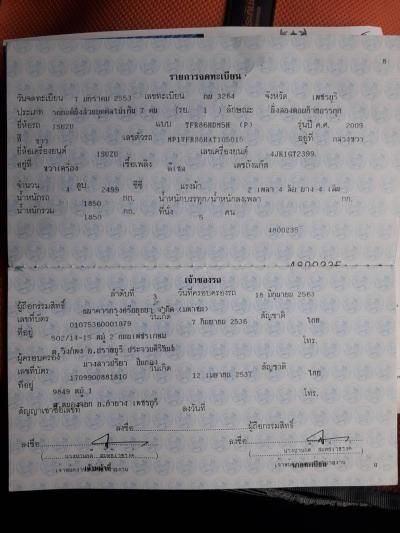 รายการจดทะเบียน
วันจดทะเบียน 7 มกราคม 2553 เลขทะเบียน กม 3264 จังหวัด เพชรบุรี
ประเภท รถยนต์นั่งส่วนบุคคลไม่เกิน 7 คน (รย. 1 ) ลักษณะ นั่งสองตอนท้ายบรรทุก
ยี่ห้อรถ ISUZU แบบ TFR86HDM5H (P) รุ่นปี ค.ศ. 2009
สี ขาว เลขตัวรถ MP1TFR86HAT105015 อยู่ที่ กลางขวา
ยี่ห้อเครื่องยนต์ ISUZU เลขเครื่องยนต์ 4JK1GT2399
อยู่ที่ ขวาเครื่อง เชื้อเพลิง ดีเซล เลขถังแก๊ส
จำนวน 4 สูบ 2499 ซีซี แรงม้า 2 เพลา 4 ล้อ ยาง 4 เส้น
น้ำหนักรถ 1850 กก. น้ำหนักบรรทุก/น้ำหนักลงเพลา กก.
น้ำหนักรวม 1850 กก. ที่นั่ง 5 คน
4800235
4800235
เจ้าของรถ
ลำดับที่ 3 วันที่ครอบครองรถ 16 มิถุนายน 2563
ผู้ถือกรรมสิทธิ์ ธนาคารกรุงศรีอยุธยา จำกัด (มหาชน)
เลขที่บัตร 01075360001879 วันเกิด 7 กันยายน 2536 สัญชาติ ไทย
ที่อยู่ 502/14-15 หมู่ 2 ถนนเพชรเกษม โทร.
ต.วังก์พง อ.ปราณบุรี ประจวบคีรีขันธ์
ผู้ครอบครอง
เลขที่บัตร 1709900881810 วันเกิด 12 เมษายน 2537 สัญชาติ ไทย
ที่อยู่ 9849 หมู่ 1 โทร.
ต.หนองจอก อ.ท่ายาง เพชรบุรี
สัญญาเช่าซื้อเลขที่ ลงวันที่
ลงชื่อ ผู้ถือกรรมสิทธิ์
ลงชื่อ ลงชื่อ
นายทะเบียน